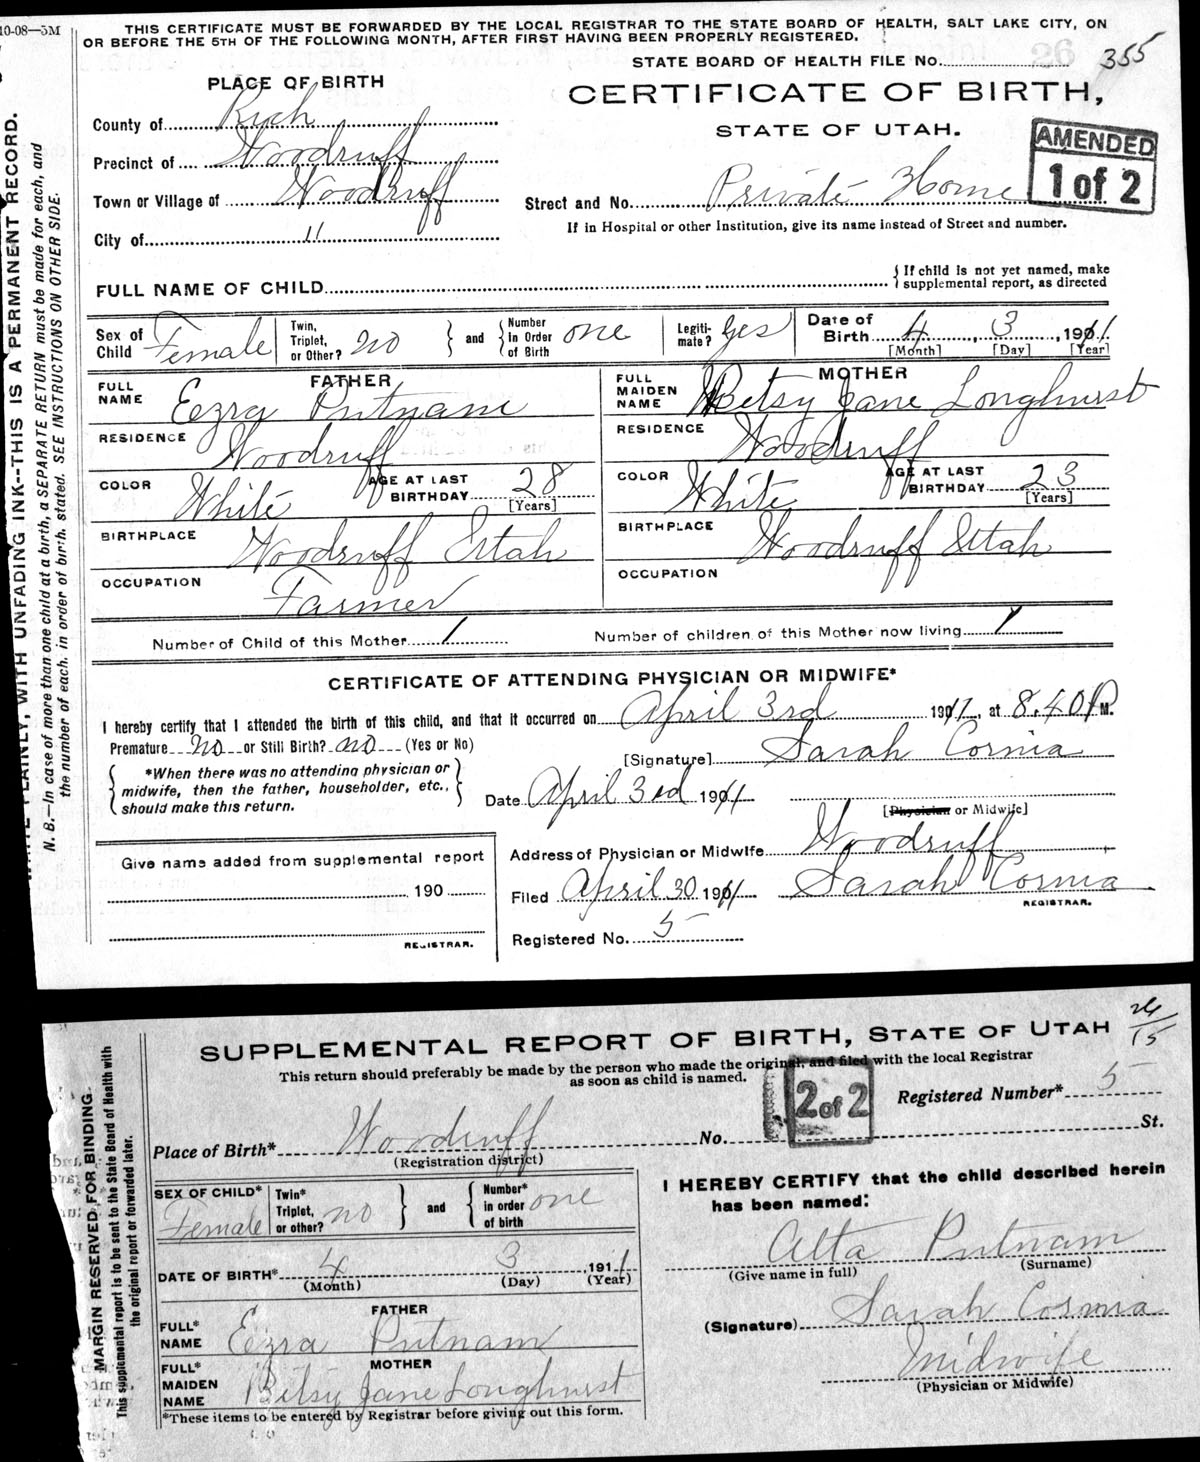 10-08—5M
THIS CERTIFICATE MUST BE FORWARDED BY THE LOCAL REGISTRAR TO THE STATE BOARD OF HEALTH, SALT LAKE CITY, ON
OR BEFORE THE 5TH OF THE FOLLOWING MONTH, AFTER FIRST HAVING BEEN PROPERLY REGISTERED.
STATE BOARD OF HEALTH FILE No. 355
PLACE OF BIRTH
CERTIFICATE OF BIRTH,
STATE OF UTAH.
AMENDED
1 of 2
County of Rich
Precinct of Woodruff
Town or Village of Woodruff
City of "
Street and No. Private Home
If in Hospital or other Institution, give its name instead of Street and number.
FULL NAME OF CHILD
{ If child is not yet named, make
supplemental report, as directed
Sex of Child Female
Twin, Triplet, or Other? no
} and { Number In Order of Birth one
Legiti- mate? yes
Date of Birth 4, 3, 1911
[Month] [Day] [Year]
FATHER
FULL NAME Eezra Putnam
RESIDENCE Woodruff
COLOR White AGE AT LAST BIRTHDAY 28
[Years]
BIRTHPLACE Woodruff Utah
OCCUPATION Farmer
MOTHER
FULL MAIDEN NAME Betsy Jane Longhurst
RESIDENCE Woodruff
COLOR White AGE AT LAST BIRTHDAY 23
[Years]
BIRTHPLACE Woodruff Utah
OCCUPATION
Number of Child of this Mother 1
Number of children of this Mother now living 1
CERTIFICATE OF ATTENDING PHYSICIAN OR MIDWIFE*
I hereby certify that I attended the birth of this child, and that it occurred on April 3rd 1911, at 8.40 P M.
Premature no or Still Birth? no (Yes or No)
[Signature] Sarah Cornia
{ *When there was no attending physician or
midwife, then the father, householder, etc.,
should make this return. }
Date April 3rd 1911
[Physician or Midwife]
Address of Physician or Midwife Woodruff
Filed April 30 1911 Sarah Cornia
REGISTRAR.
Registered No. 5
Give name added from supplemental report
190
REGISTRAR.
WRITE PLAINLY, WITH UNFADING INK--THIS IS A PERMANENT RECORD.
N. B.—In case of more than one child at a birth, a SEPARATE RETURN must be made for each, and
the number of each, in order of birth, stated. SEE INSTRUCTIONS ON OTHER SIDE.
SUPPLEMENTAL REPORT OF BIRTH, STATE OF UTAH
26/15
This return should preferably be made by the person who made the original, and filed with the local Registrar
as soon as child is named.
2 of 2
Registered Number* 5
Place of Birth* Woodruff No. St.
(Registration district)
SEX OF CHILD* Female
Twin* Triplet, or other? no
} and { Number* in order of birth one
DATE OF BIRTH* 4 3, 1911
(Month) (Day) (Year)
FATHER
FULL* NAME Eezra Putnam
MOTHER
FULL* MAIDEN NAME Betsy Jane Longhurst
*These items to be entered by Registrar before giving out this form.
I HEREBY CERTIFY that the child described herein
has been named:
Alta Putnam
(Give name in full) (Surname)
(Signature) Sarah Cornia
Midwife
(Physician or Midwife)
MARGIN RESERVED FOR BINDING.
This supplemental report is to be sent to the State Board of Health with
the original report or forwarded later.